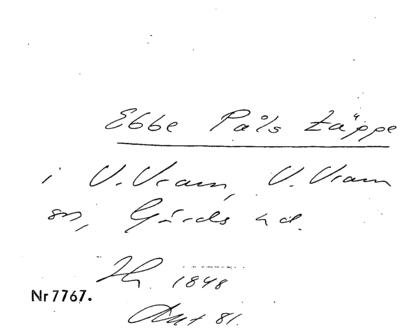 Ebbe Påls Täppe
i V. Vram, V. Vram
sn, Gärds hd.
Th. 1848
Nr 7767.
Akt 81.